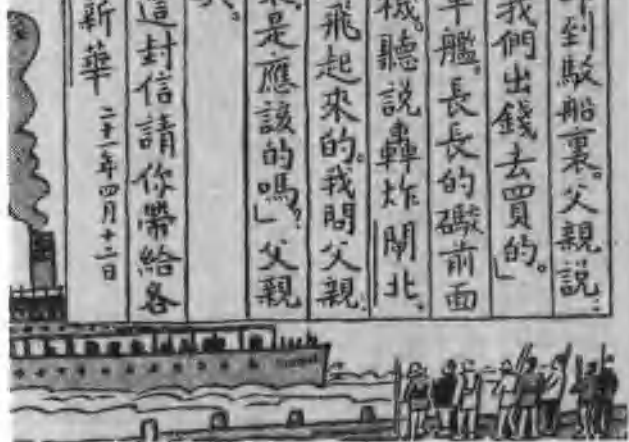 到駁船裏。父親說：
我們出錢去買的。」
軍艦。長長的礮前面
機。聽說轟炸閘北、
飛起來的。我問父親：
是應該的嗎？」父親
這封信請你帶給各
新華 二十一年四月十二日